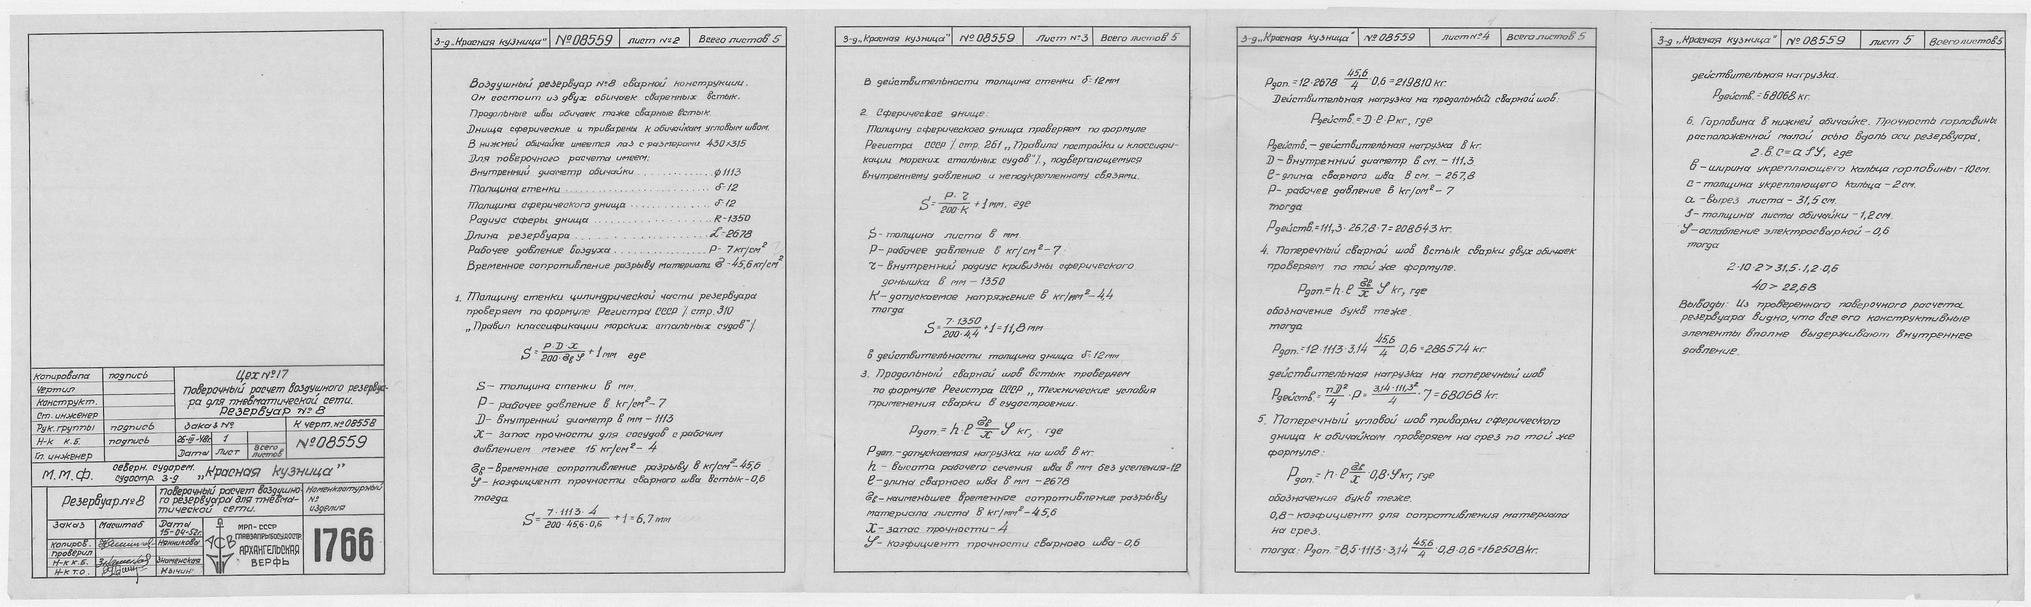 Копировала подпись
Чертил
Конструкт.
Ст. инженер
Рук. группы подпись
Н-к к.б. подпись
Гл. инженер
Цех №17
Поверочный расчет воздушного резервуа-
ра для пневматической сети.
Резервуар №8
Заказ № К черт. №08558
26-III-48г. 1 Всего листов №08559
Дата Лист
М.М.Ф. северн. судорем. судостр. з-д „Красная кузница"
Резервуар №8
Поверочный расчет воздушно-
го резервуара для пневма-
тической сети.
Номенклатурный
№
изделия
Заказ Масштаб Дата
15-04-52г.
Копиров. Нянникова
Проверил
Н-к к.б. Знаменская
Н-к т.о. Кычин
АСВ
МРП-СССР
ГЛАВЗАПРЫБСУДОСТР.
АРХАНГЕЛЬСКАЯ
ВЕРФЬ
1766
З-д „Красная кузница" №08559 Лист №2 Всего листов 5
Воздушный резервуар №8 сварной конструкции.
Он состоит из двух обичаек сваренных встык.
Продольные швы обичаек тоже сварные встык.
Днища сферические и приварены к обичайкам угловым швом.
В нижней обичайке имеется лаз с размерами 430×315
Для поверочного расчета имеем:
Внутренний диаметр обичайки ............ φ 1113
Толщина стенки ............ δ-12
Толщина сферического днища ............ δ-12
Радиус сферы днища ............ R-1350
Длина резервуара ............ L-2678
Рабочее давление воздуха ............ P-7 кг/см²
Временное сопротивление разрыву материала δв-45,6 кг/см²
1. Толщину стенки цилиндрической части резервуара
проверяем по формуле Регистра СССР /стр. 310
„Правил классификации морских стальных судов"/.
S = P·D·x / 200·δв·φ + 1 мм где
S - толщина стенки в мм
P - рабочее давление в кг/см² - 7
D - внутренний диаметр в мм - 1113
X - запас прочности для сосудов с рабочим
давлением менее 15 кг/см² - 4
δв - временное сопротивление разрыву в кг/см² - 45,6
φ - коэфициент прочности сварного шва встык - 0,6
тогда
S = 7·1113·4 / 200·45,6·0,6 + 1 = 6,7 мм
З-д „Красная кузница" №08559 Лист №3 Всего листов 5
В действительности толщина стенки δ=12 мм
2. Сферическое днище:
Толщину сферического днища проверяем по формуле
Регистра СССР /стр. 261 „Правила постройки и классифи-
кации морских стальных судов"/, подвергающемуся
внутреннему давлению и неподкрепленному связями.
S = P·τ / 200·K + 1 мм. где
S - толщина листа в мм.
P - рабочее давление в кг/см² - 7
τ - внутренний радиус кривизны сферического
донышка в мм - 1350
K - допускаемое напряжение в кг/мм² - 4,4
тогда
S = 7·1350 / 200·4,4 + 1 = 11,8 мм
в действительности толщина днища δ=12 мм.
3. Продольный сварной шов встык проверяем
по формуле Регистра СССР „Технические условия
применения сварки в судостроении.
Pдоп. = h·ℓ δв/x φ кг, где
Pдоп. - допускаемая нагрузка на шов в кг.
h - высота рабочего сечения шва в мм без усиления - 12
ℓ - длина сварного шва в мм - 2678
δв - наименьшее временное сопротивление разрыву
материала листа в кг/мм² - 45,6
X - запас прочности - 4
φ - коэфициент прочности сварного шва - 0,6
З-д „Красная кузница" №08559 Лист №4 Всего листов 5
Pдоп. = 12·2678 45,6/4 ·0,6 = 219810 кг.
Действительная нагрузка на продольный сварной шов:
Pдейств. = D·ℓ·P кг, где
Pдейств. - действительная нагрузка в кг.
D - внутренний диаметр в см. - 111,3
ℓ - длина сварного шва в см. - 267,8
P - рабочее давление в кг/см² - 7
тогда
Pдейств. = 111,3·267,8·7 = 208643 кг.
4. Поперечный сварной шов встык сварки двух обичаек
проверяем по той же формуле.
Pдоп. = h·ℓ δв/x φ кг, где
обозначение букв теже.
тогда
Pдоп. = 12·1113·3,14 45,6/4 ·0,6 = 286574 кг.
действительная нагрузка на поперечный шов
Pдейств. = πD²/4 ·P = 3,14·111,3²/4 ·7 = 68068 кг.
5. Поперечный угловой шов приварки сферического
днища к обичайкам проверяем на срез по той же
формуле:
Pдоп. = h·ℓ δв/x ·0,8·φ кг, где
обозначения букв теже.
0,8 - коэфициент для сопротивления материала
на срез.
тогда: Pдоп. = 8,5·1113·3,14 45,6/4 ·0,8·0,6 = 162508 кг.
З-д „Красная кузница" №08559 лист 5 Всего листов 5
действительная нагрузка.
Pдейств. = 68068 кг.
6. Горловина в нижней обичайке. Прочность горловины
расположенной малой осью вдоль оси резервуара,
2·в·c = a·S·φ, где
в - ширина укрепляющего кольца горловины - 10 см.
c - толщина укрепляющего кольца - 2 см.
a - вырез листа - 31,5 см.
S - толщина листа обичайки - 1,2 см.
φ - ослабление электросваркой - 0,6
тогда
2·10·2 > 31,5·1,2·0,6
40 > 22,68
Выводы: Из проверенного поверочного расчета
резервуара видно, что все его конструктивные
элементы вполне выдерживают внутреннее
давление.